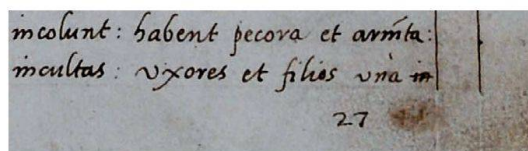 incolunt: habent pecora et arm̄ta:
incultas: uxores et filios unà in
27